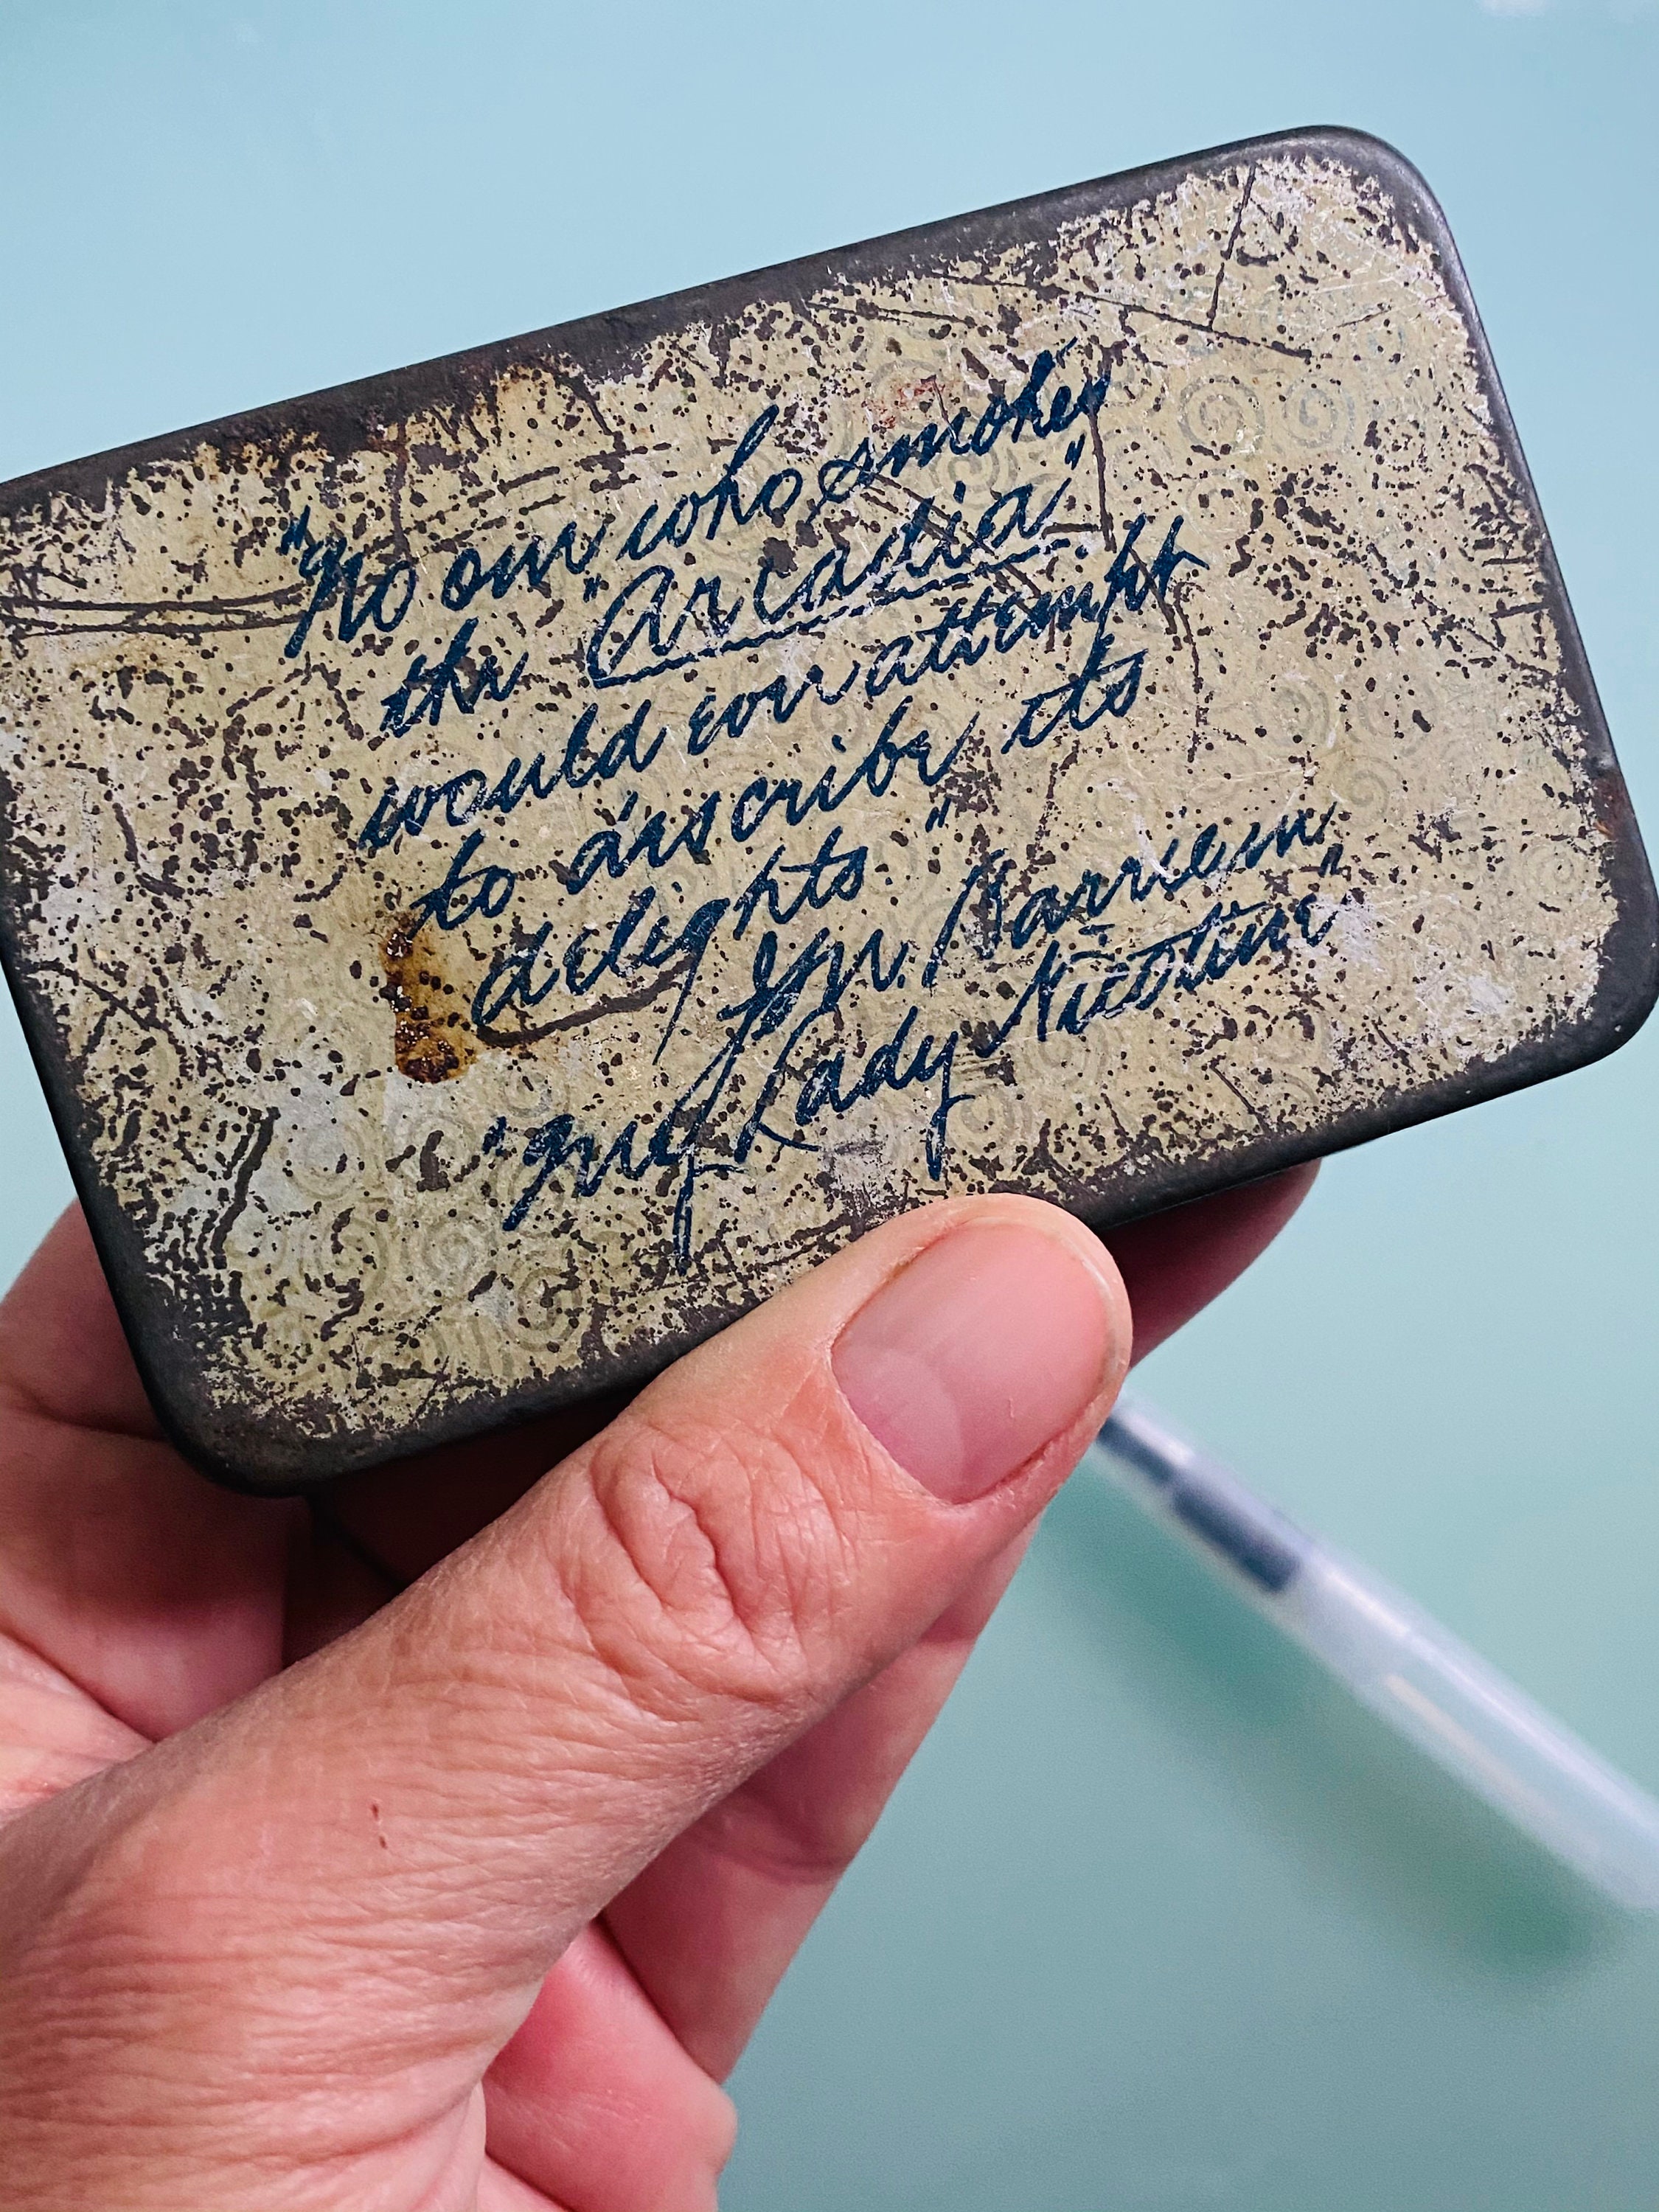 "No one who smokes
the "Arcadia"
would ever attempt
to describe its
delights."
J.M. Barrie in
"My Lady Nicotine"